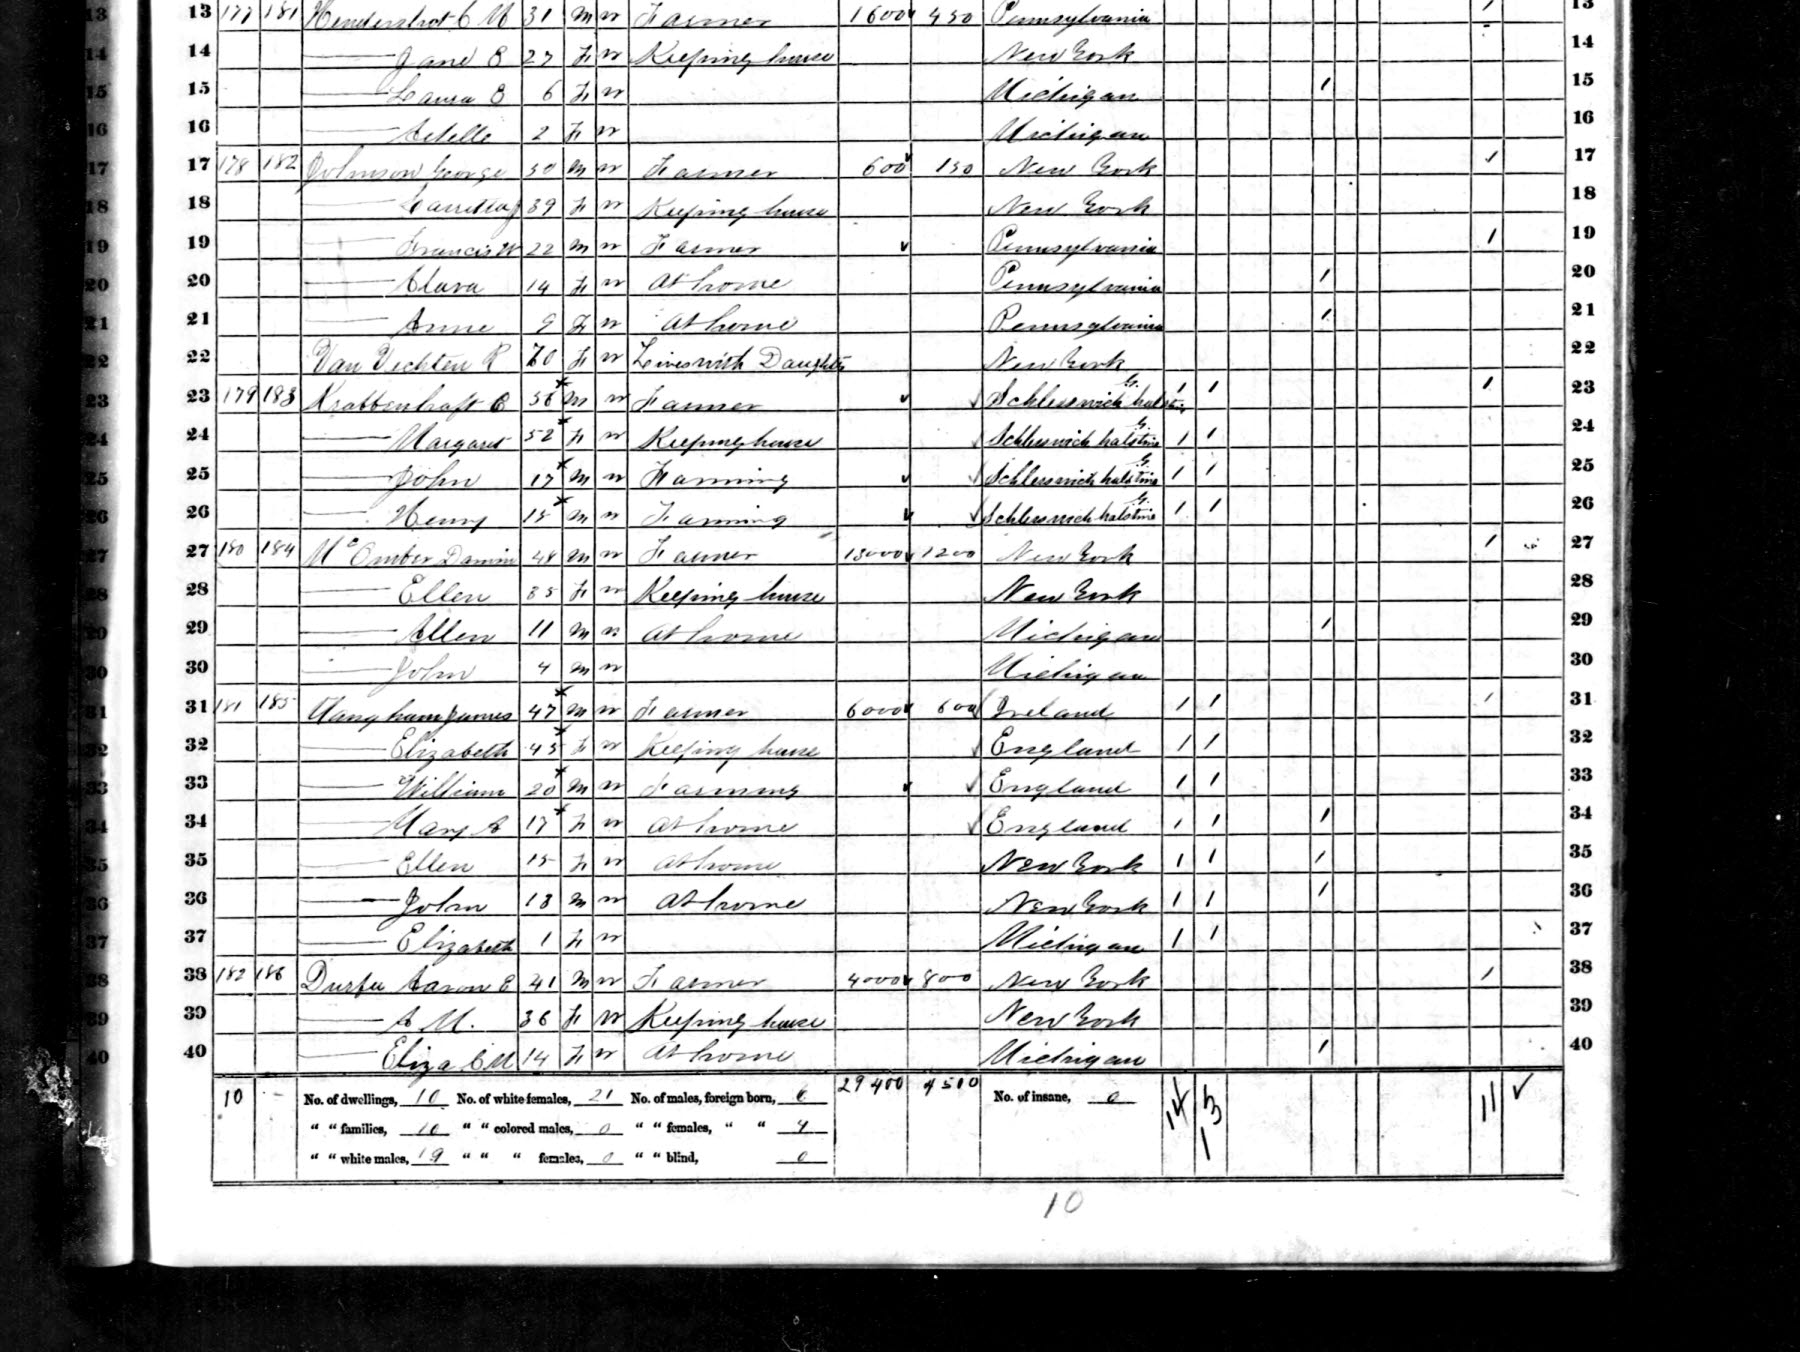 13 177 181 Hendershot C M 31 M W Farmer 1600 450 Pennsylvania 1 13
14 —— Jane E 27 F W Keeping house New York 14
15 —— Laura E 6 F W Michigan 1 15
16 —— Estelle 2 F W Michigan 16
17 178 182 Johnson George 50 M W Farmer 600 150 New York 1 17
18 —— 39 F W Keeping house New York 18
19 —— Francis W 22 M W Farmer Pennsylvania 1 19
20 —— Clara 14 F W At home Pennsylvania 1 20
21 —— Anne 9 F W At home Pennsylvania 1 21
22 Van Vechten R 70 F W Lives with Daughter New York 22
23 179 183 Krabbenhoft C 56 M W Farmer Schleswich halstine G. 1 1 1 23
24 —— Margaret 52 F W Keeping house Schleswich halstine G. 1 1 24
25 —— John 17 M W Farming Schleswich halstine G. 1 1 25
26 —— Henry 15 M W Farming Schleswich halstine G. 1 1 26
27 180 184 McOmber 48 M W Farmer 13000 1200 New York 1 27
28 —— Ellen 35 F W Keeping house New York 28
29 —— Allen 11 M W At home Michigan 1 29
30 —— John 4 M W Michigan 30
31 181 185 James 47 M W Farmer 6000 600 Ireland 1 1 1 31
32 —— Elizabeth 45 F W Keeping house England 1 1 32
33 —— William 20 M W Farming England 1 1 33
34 —— Mary A 17 F W At home England 1 1 1 34
35 —— Ellen 15 F W At home New York 1 1 1 35
36 —— John 13 M W At home New York 1 1 1 36
37 —— Elizabeth 1 F W Michigan 1 1 37
38 182 186 Durfee Aaron E 41 M W Farmer 4000 800 New York 1 38
39 —— A M. 36 F W Keeping house New York 39
40 —— Eliza C M 14 F W At home Michigan 1 40
10 No. of dwellings, 10 No. of white females, 21 No. of males, foreign born, 6 29400 4500 No. of insane, 0 14 13 11 ✓
" " families, 10 " " colored males, 0 " " females, " " 4
" " white males, 19 " " " females, 0 " " blind, 0
10